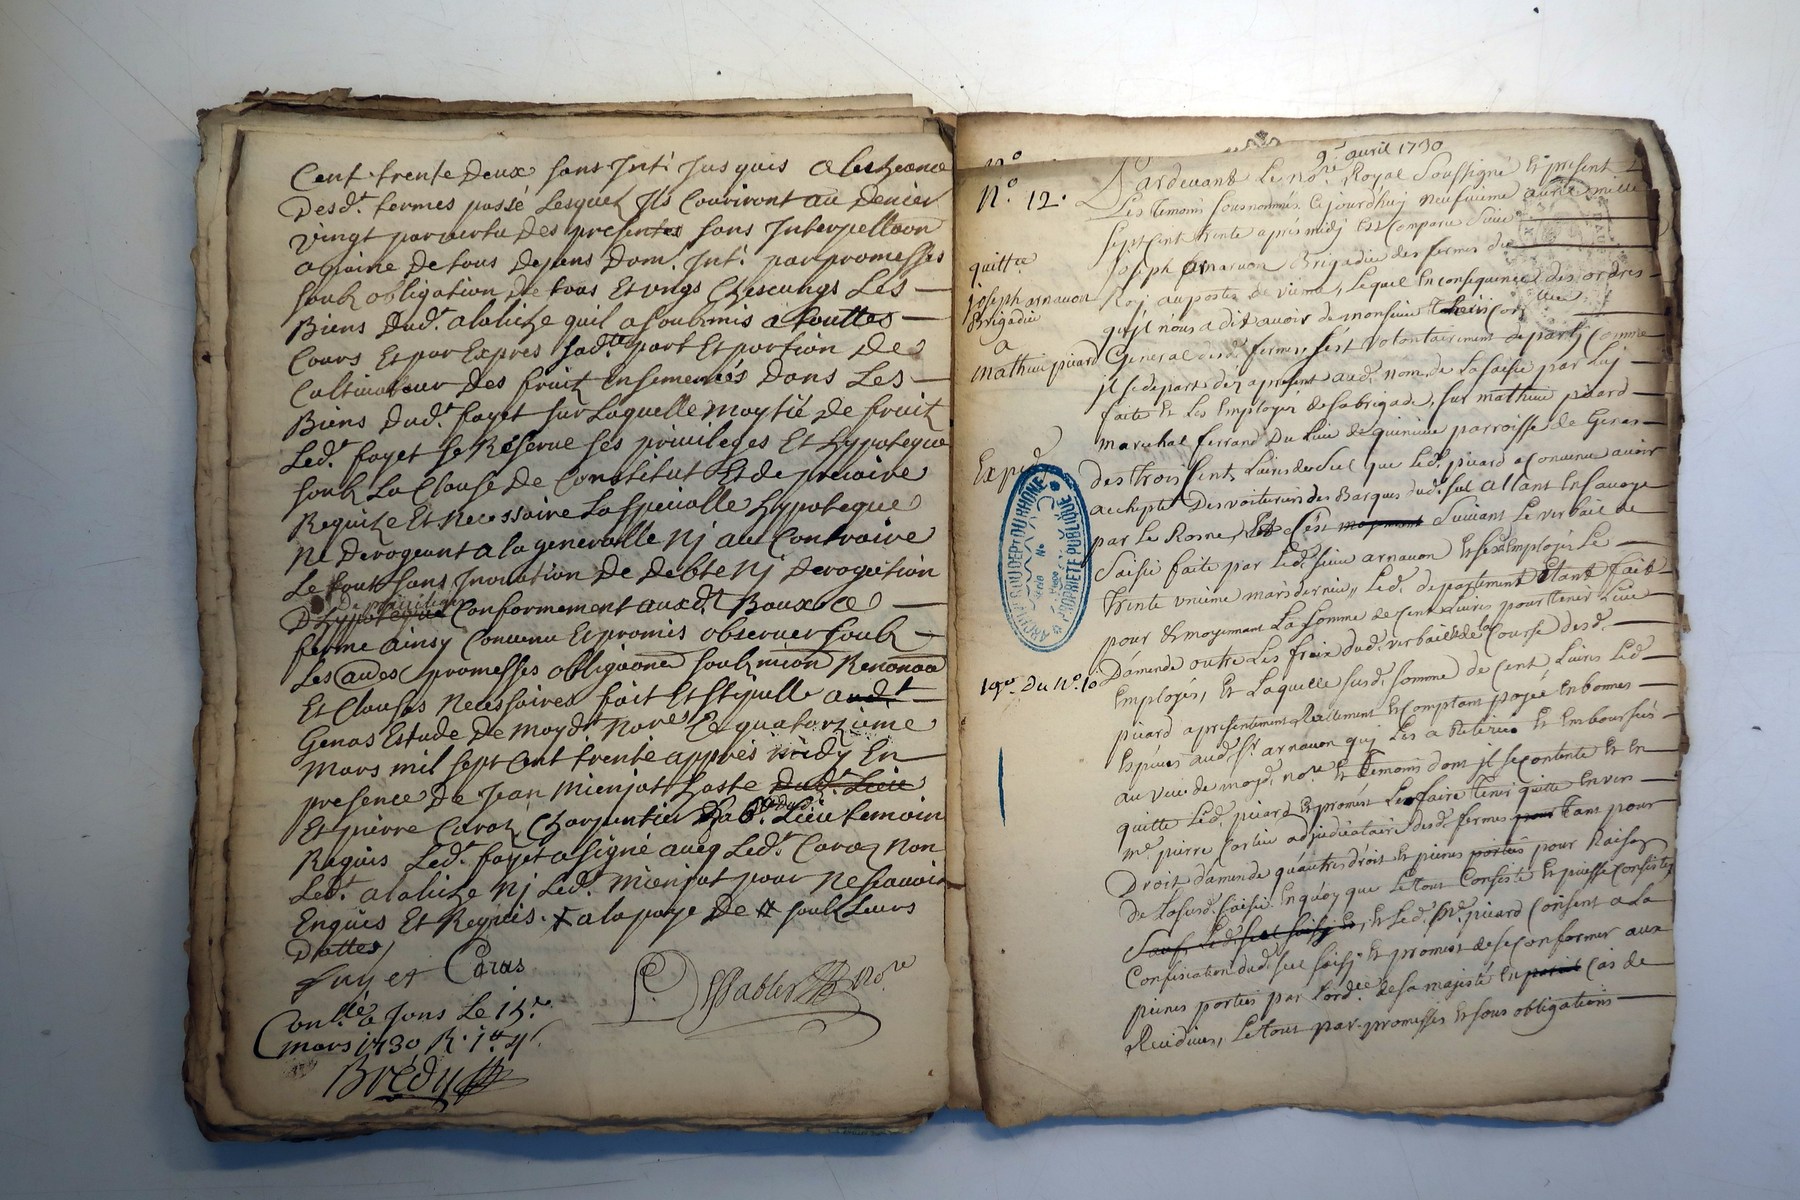 Cent trente Deux sans Int. Jusquis a lescheance
Desd. termes passé Lesquelz Ils Couriront au Denier
Vingt par vertu Des presentes sans Interpellaon
a paine De tous Depens Dom. Int. par promesses
soubz obligation De tous Et vngs Chescungs Les
Biens Dud. quil a soubzmis a touttes
Cours Et par Expres sad.te part Et portion De
Cultivateur Des fruitz Ensemencés Dans Les
Biens Dud. fayet sur Laquelle moytié De fruitz
Led. fayet se Réserue ses priuileges Et hypoteque
soubz La Clause De Constitut Et de precaire
Requize Et necessaire La specialle hypoteque
ne Derogeant a la generalle nj au Contraire
Le tout sans Inouation De Debte nj Derogation
Conformement auxd. Baux a
ferme ainsy Conuenu Et promis obseruer soubz
Les promesses obligaons soubzmion Renonaon
Et Clauses necessaires fait Et Stipullé aud.t
Genas Estude De moyd.t nore Le quatorzieme
Mars mil sept Cent trente appres midy En
presence De Jean Mienjat haste Dud. Lieu
Et pierre Caraz Charpentier Dud. Lieu temoin
Requis Led. fayet a signé aueq Led. Caraz Non
Led. nj Led. Mienjat pour ne scauoir
Enquis Et Requis. a la paye De soubz Leurs
Dattes
fayet Caras
No.re
Conllé a Jons Le 15.e
mars 1730 R.
Brédy
9e avril 1730
N.º 12.
quitt.ce
joseph arnauon
Brigadier
a
mathieu picard
Exped
19e. Du N.º 10
Pardeuant Le no.re Royal Soussigné Et present
Les temoins sousnommés Cejourd'huj neufuieme auril mille
sept Cent trente après midj Est Comparu Sieur
Joseph arnauon Brigadier des fermes du
Roj au poste de vienne, Lequel En consequence des ordres
qu'jl nous a dit auoir de monsieur
General desd. fermes, s'est volontairement departj Comme
jl se depart dez apresent aud. nom, de La saisie par Luj
faite Et Les Employés de sa brigade, sur mathieu picard
marechal ferrand Du Lieu de parroisse de Genas
des trois Cent Liures de Sel que Led. picard a Conuenu auoir
achepté Des voituriers des Barques dud. sel allant En sauoye
par Le Rosne, C'est Suiuant Le verbail de
Saisie faite par Led. sieur arnauon Et ses Employés Le
trente vnieme mars dernier, Led. departement Etant fait
pour Et moyennant La somme de Cent Liures pour tenir Lieu
D'amende outre Les fraix dud. verbail Et de la Course desd.
Employés, Et Laquelle susd. somme de Cent Liures Led.
picard a presentement Reellement Et comptant payée En bonnes
Espèces aud. Sr. arnauon quj Les a Retirées Et Emboursés
au veu de moyd. no.re Et temoins dont jl se contente Et En
quitte Led. picard Et promet Le faire tenir quitte Enuers
m.e pierre Carlier adjudicataire desd. fermes tant pour
Droit d'amende qu'autres droit Et pieines portées pour Raison
de La susd. saisie En quoy que Le tout Consiste Et puisse Consister
Et Led. picard Consent a La
Confiscation dud. sel saisj Et promet de se Conformer aux
pieines portées par Lord.ce de sa majesté En Cas de
Recidiues, Le tout par promesses Et sous obligations
ARCHIVES DU DEPT DU RHONE
PROPRIÉTÉ PUBLIQUE